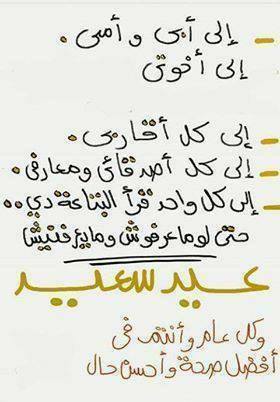 - إلى أبى و أمى.
إلى أخوتى
- إلى كل أقاربى.
- إلى كل أصدقائى ومعارفى.
- إلى كل واحد قرأ البتاعة دي..
حتى لو ماعرفوش وما يعرفنيش
عيد سعيد
وكل عام وأنتم فى
أفضل صحة وأحسن حال